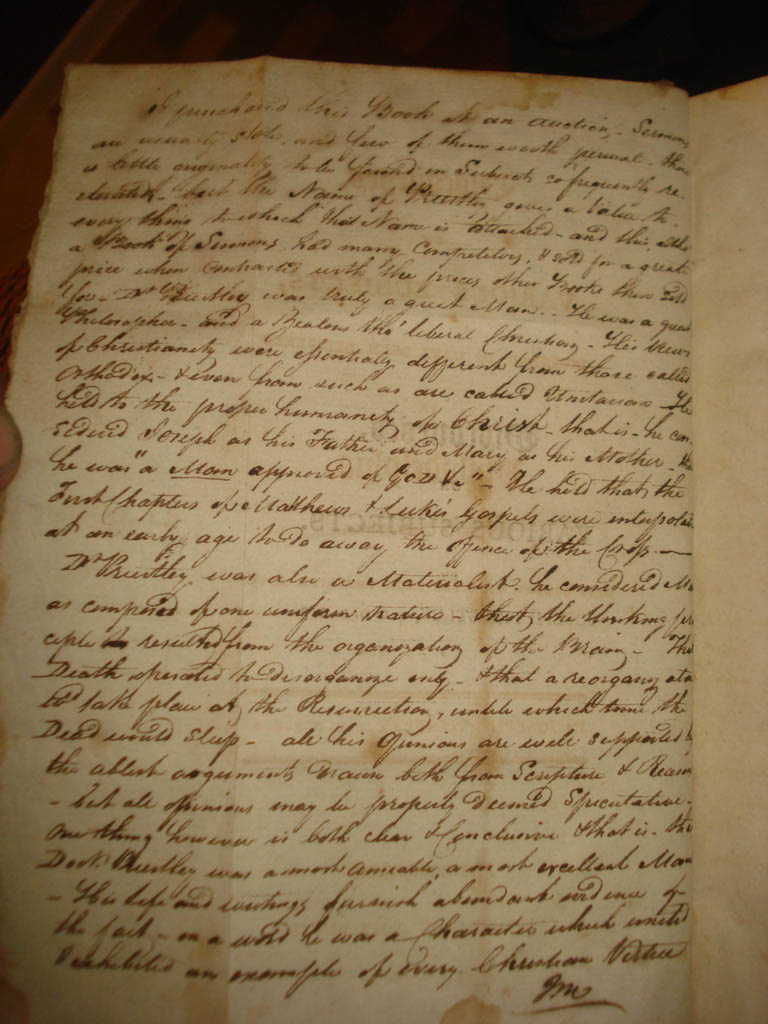 I purchased this Book at an Auction - Sermons
are usually stale and few of them worth perusal - there
is little originality to be found in Subjects so frequently re-
iterated - but the Name of Priestley gives a Value to
every thing to which that Name is attached - and this, altho
a Book of Sermons had many Competitors, & sold for a great
price when contrasted with the prices other Books then sold
for - Dr Priestley was truly a great Man - He was a great
Philosopher - and a Zealous tho' liberal Christian - His views
of Christianity were essentially different from those called
Orthodox - & even from such as are called Unitarian He
held to the proper humanity of Christ - that is - he con-
sidered Joseph as his Father and Mary as his Mother - that
he was "a Man approved of God &c" - He held that the
First Chapters of Mathews & Luke's Gospels were interpolated
at an early age to do away the offence of the Cross -
Dr Priestley was also a Materialist. he considered Man
as composed of one uniform nature - that, the thinking prin
ciple resulted from the organization of the Brain - That
Death operated to disorganize only - & that a reorganization
wd take place at the Resurrection, until which time the
Dead would sleep - all his Opinions are well supported by
the ablest arguments drawn both from Scripture & Reason
- but all opinions may be properly deemed Speculative -
One thing however is both clear & Conclusive & that is - that
Doct. Priestley was a most amiable, a most excellent Man
- His life and writings furnish abundant evidence of
the fact - in a word he was a Character which united
& exhibited an example of every Christian Virtue